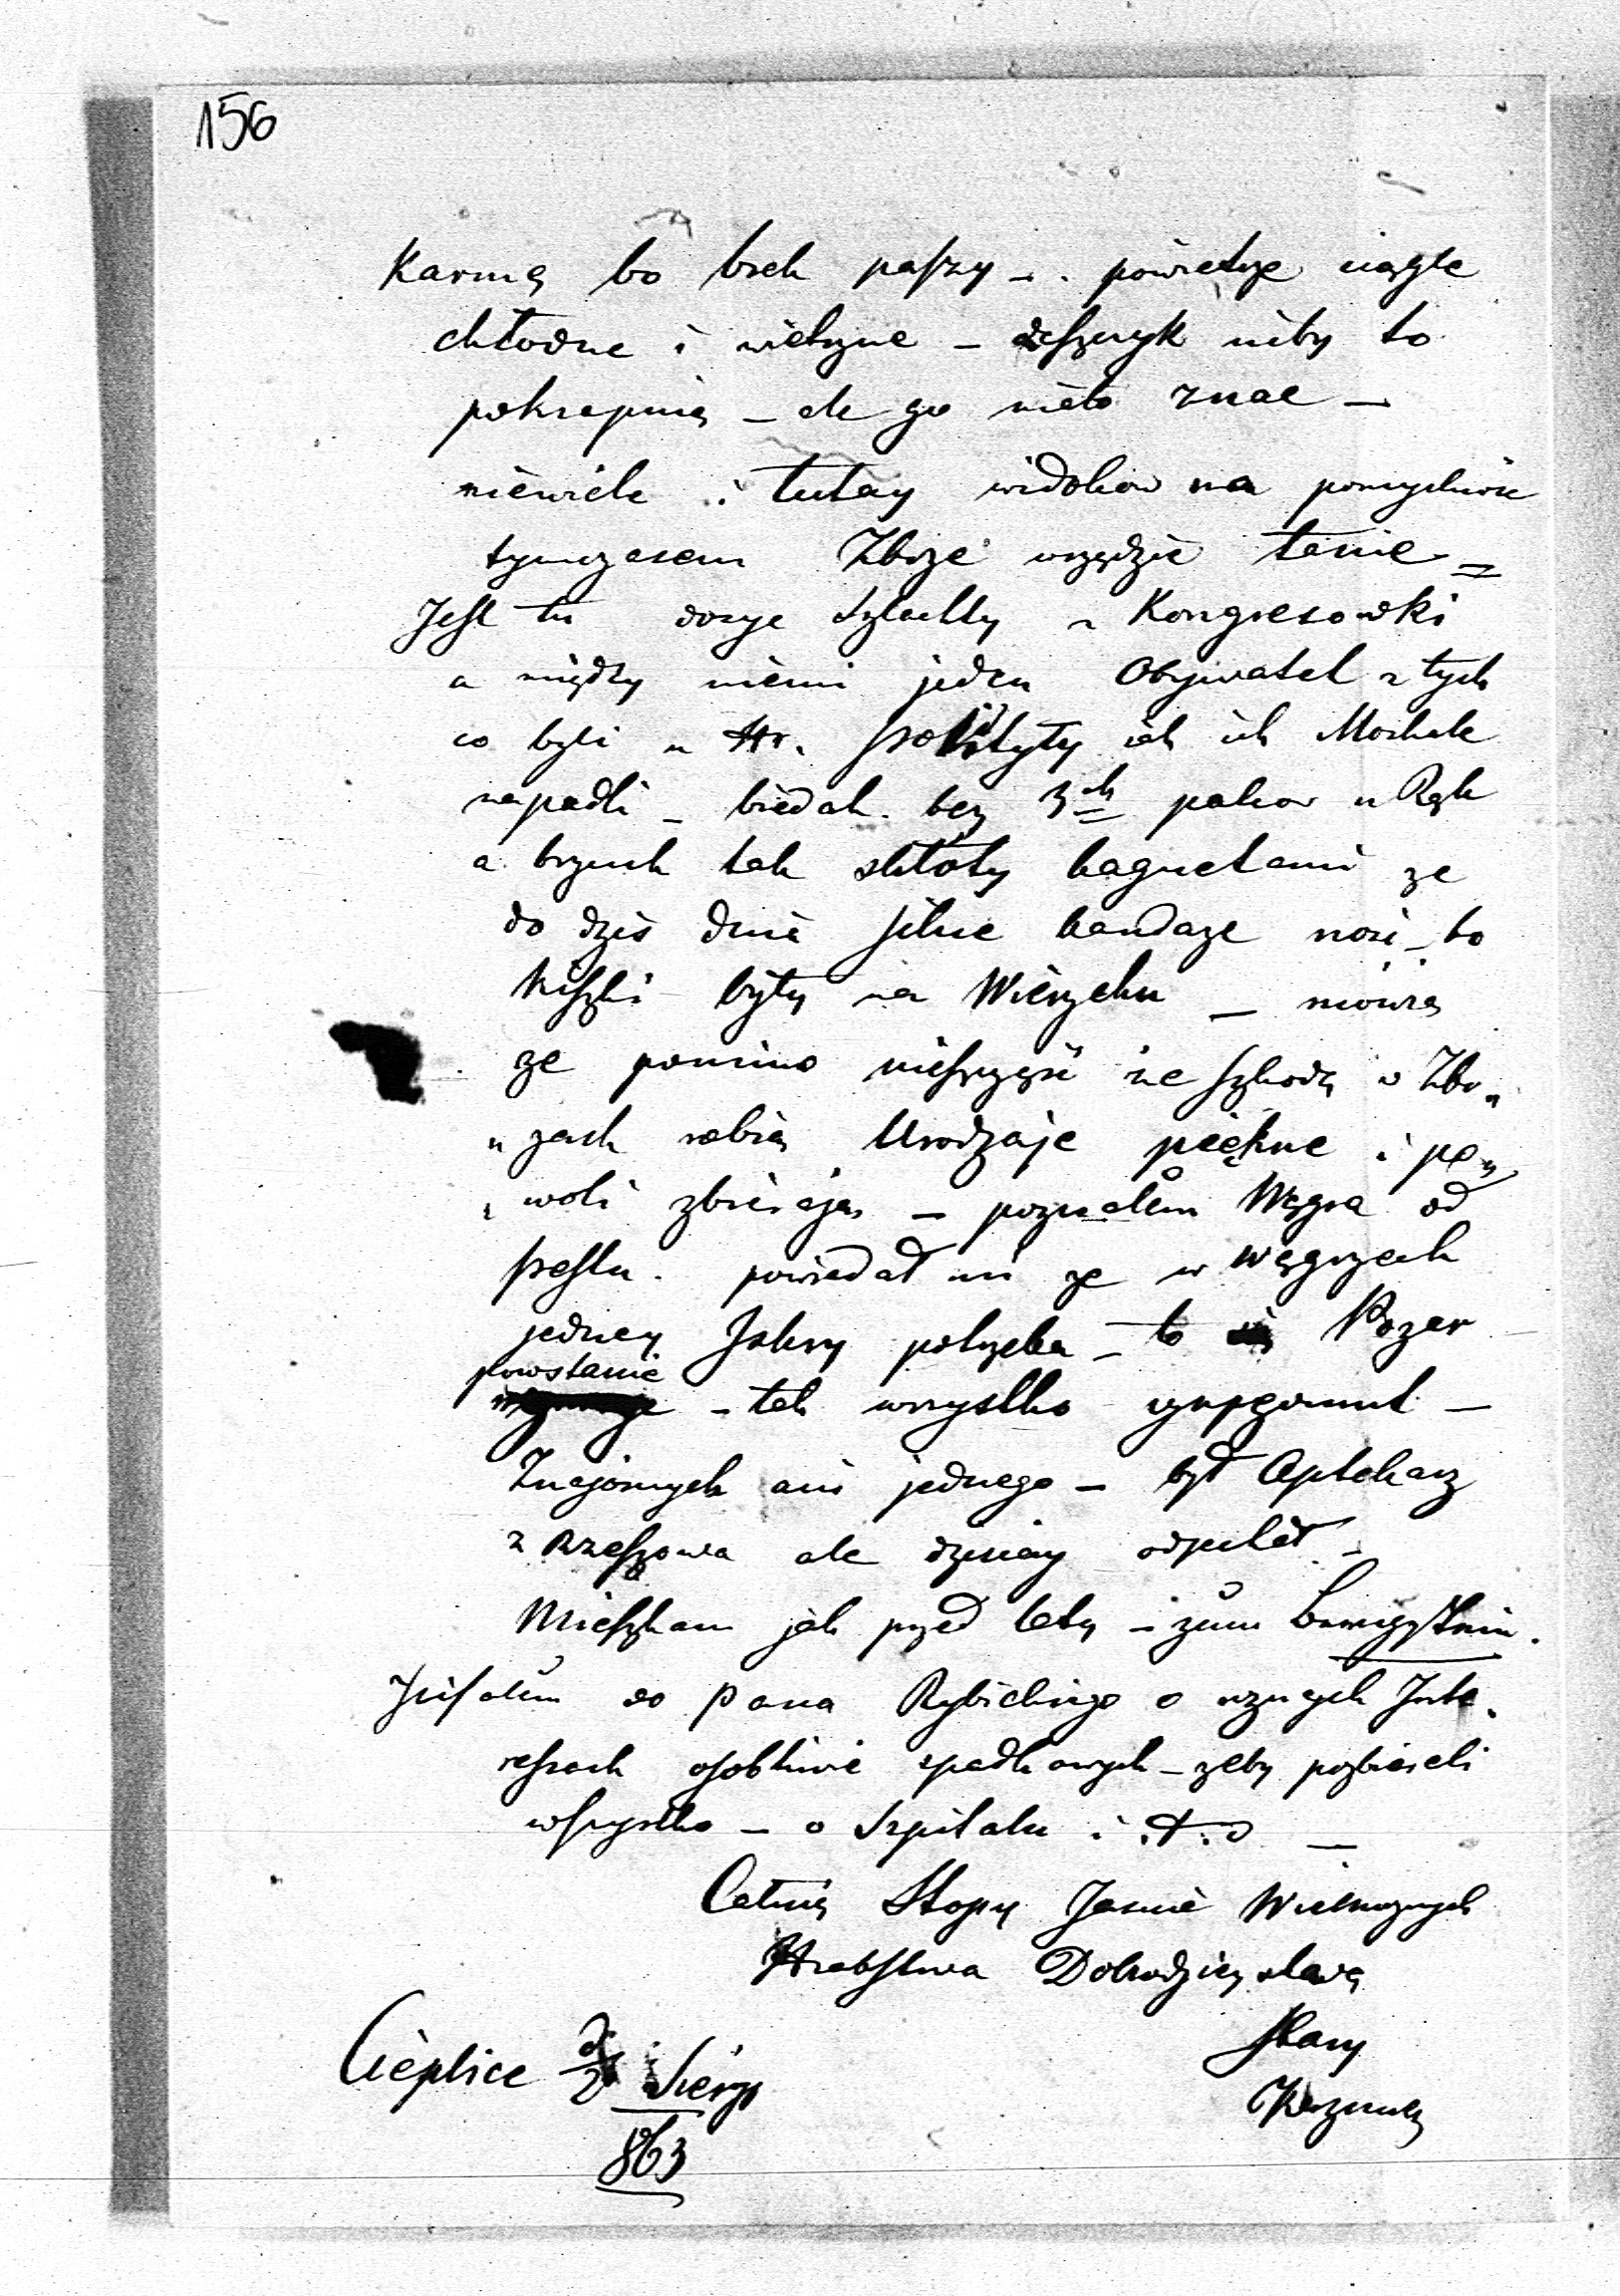 156
Karmą bo brak paszy – powietrze ciągle
chłodne i wietrzne – deszczyk niby to
pokrapnie – ale go nieto znać –
niewiele i tutay widokow na pomyslnośc
tymczasem Zboże wszędzie tanie =
Jest tu dosyc Szlachty z Kongresowki
a między niemi jeden Obywatel z tych
co byli u Hr. jak ich Moskale
napadli – biedak bez 3ch palcow u Ręk
a brzuch tak skłoty bagnetami ze
do dziś dnia silne bandaze nosi – bo
Kiszki były na Wierzchu – mówią
ze pomimo nieszczęść ile szkody w Zbo„
„zach robią Urodzaje piękne i po„
„woli zbierają – poznałem Węgra od
Pesztu. powiedał mi ze w Węgrzech
jedney Iskry potrzeba – to Pozar
powstanie
– tak wszystko –
Znajomych ani jednego – był Aptekarz
z Rzeszowa ale dzisiay odjechał –
Mieszkam jak przed laty – zum
Pisałem do Pana Rybickiego o rznych Inte„
ressach osobliwie spadkowych – zeby pozbierali
wszystko – o Szpitalu i t. d –
Całuię Stopy Jasnie Wielmoznych
Hrabstwa Dobrodzieystwa
Stary
Cieplice Sierp
863